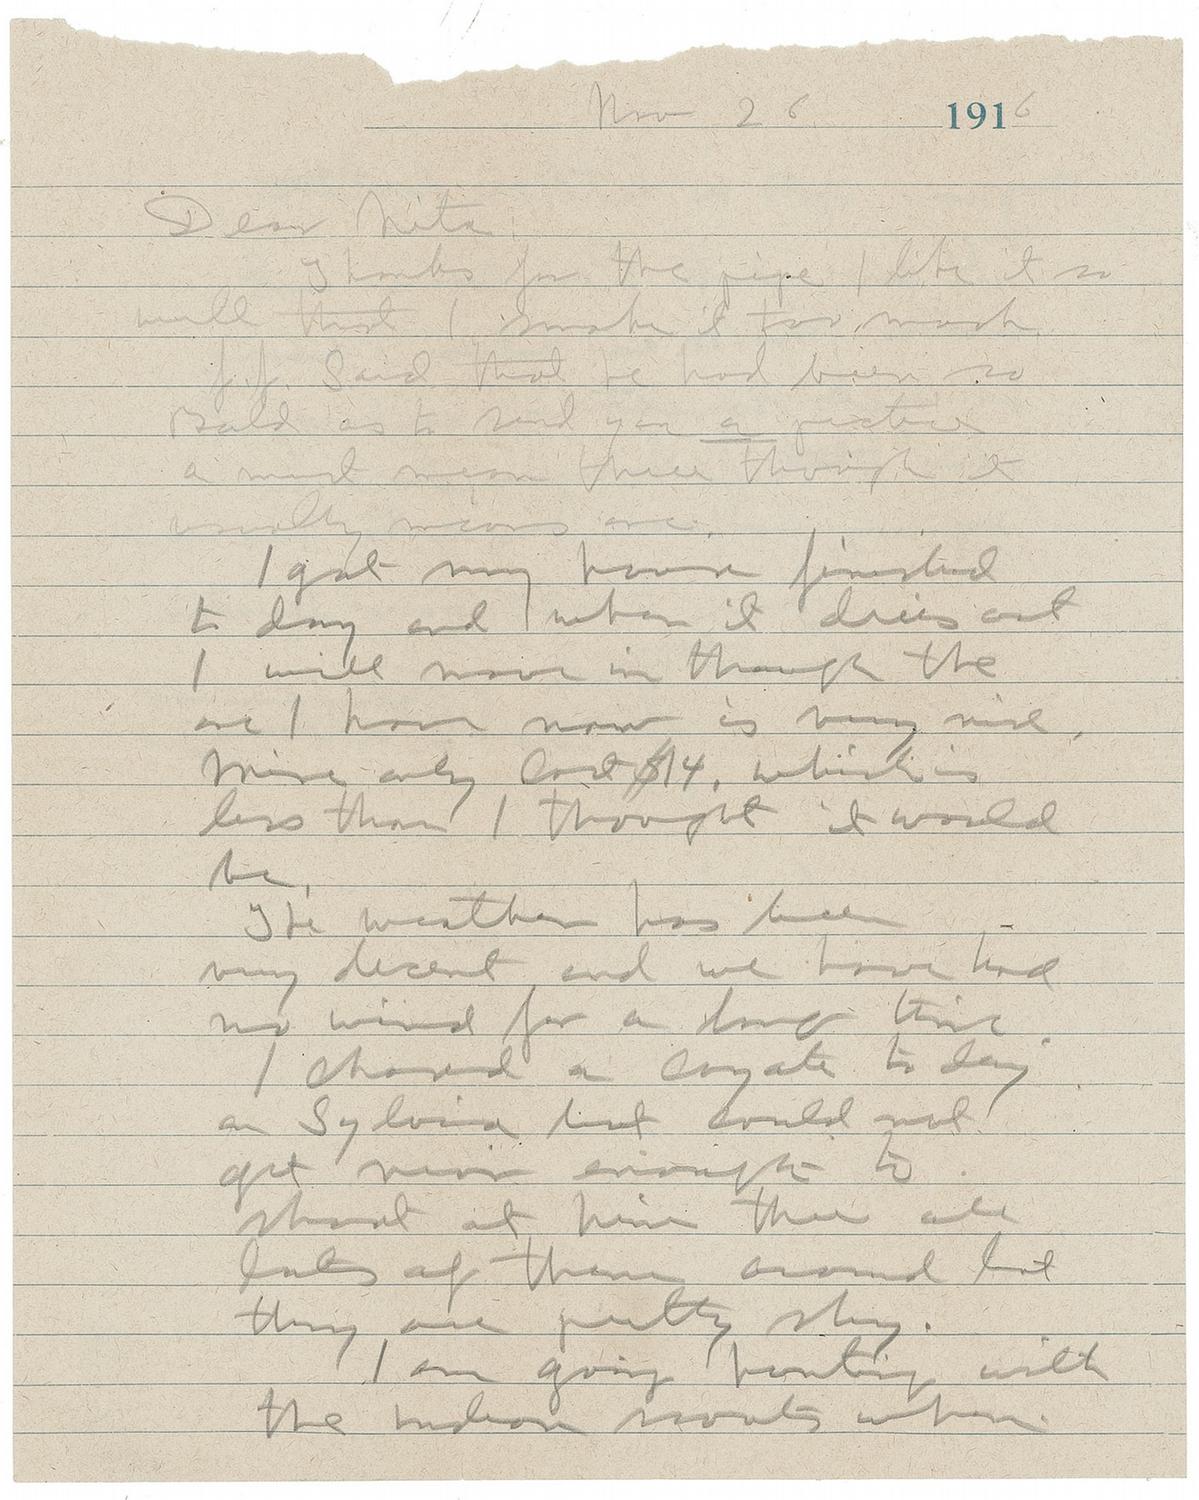 Nov 26 1916
Dear Nita.
Thanks for the pipe I like it so
well that I smoke it too much.
J.J. Said that he had been so
Bald as to send you a picture
a must mean three though it
usually means one.
I got my house finished
to day and when it dries out
I will move in though the
one I have now is very nice,
Mine only Cost $14. which is
less than I thought it would
be.
The weather has been
very decent and we have had
no wind for a long time
I chased a coyote to day
on Sylvia but could not
get near enough to
shoot at him there are
lots of them around but
they are pretty shy.
I am going hunting with
the indian scouts when